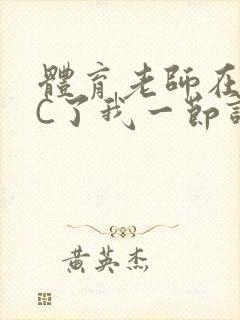 體育老師在
C了我一節
黄英杰